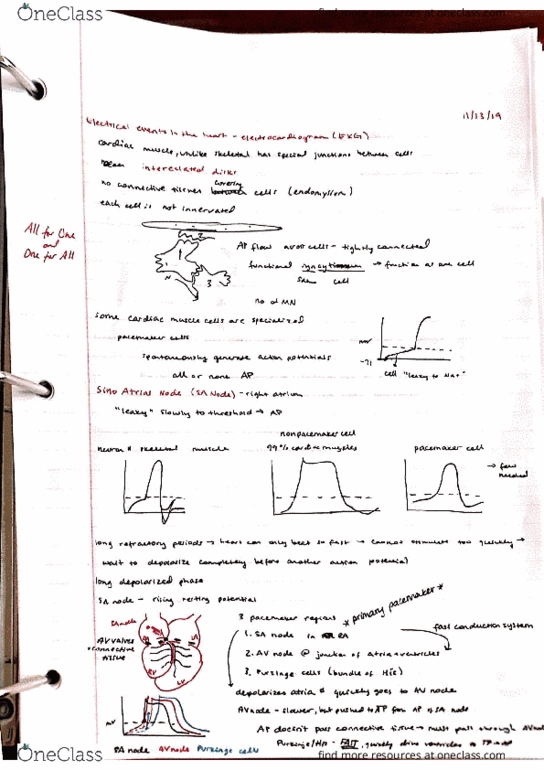 OneClass
find more resources at oneclass.com
11/13/19
Electrical events in the heart - electrocardiogram (EKG)
cardiac muscle, unlike skeletal has special junctions between cells
interclated disks
no connective tissues covering between cells (endomysium)
each cell is not innervated
All for One
and
One for All
AP flow across cells - tightly connected
functional syncytium → function as one cell
cell
no α MN
some cardiac muscle cells are specialized
pacemaker cells
spontaneously generate action potentials
all or none AP
mv
cell "leaky to Na+"
Sino Atrial Node (SA Node) - right atrium
"leaky" slowly to threshold → AP
nonpacemaker cell
neuron & skeletal muscle
99% cardiac muscles
pacemaker cell
→ few needed
long refractory periods → heart can only beat so fast → cannot stimulate too quickly →
wait to depolarize completely before another action potential
long depolarized phase
SA node - rising resting potential
3 pacemaker regions
*primary pacemaker*
fast conduction system
1. SA node in RA
2. AV node @ junction of atria + ventricles
3. Purkinje cells (bundle of His)
SA node
AV valves
+ connective
tissue
RV
LV
depolarizes atria & quickly goes to AV node
AV node - slower, but pushed to TP for AP of SA node
AP doesn't pass connective tissue → must pass through AV node
Purkinje/His - FAST, quickly drive ventricles to
mv
SA node AV node Purkinje cells
OneClass
find more resources at oneclass.com